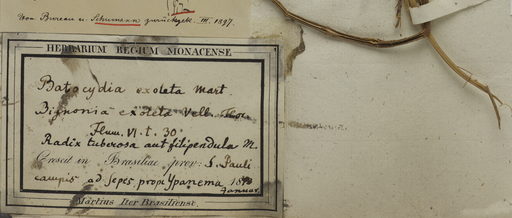 Von Bureau u. Schumann zurückgek. III. 1897.
HERBARIUM REGIUM MONACENSE.
Batocydia exoleta Mart.
Bignonia exoleta Vell.
Flum. VI. t. 30.
Radix tuberosa aut filipendula M.
Crescit in Brasiliae prov: S. Pauli
campis ad sepes prope Ypanema,
Januar.
Martius Iter Brasiliense.